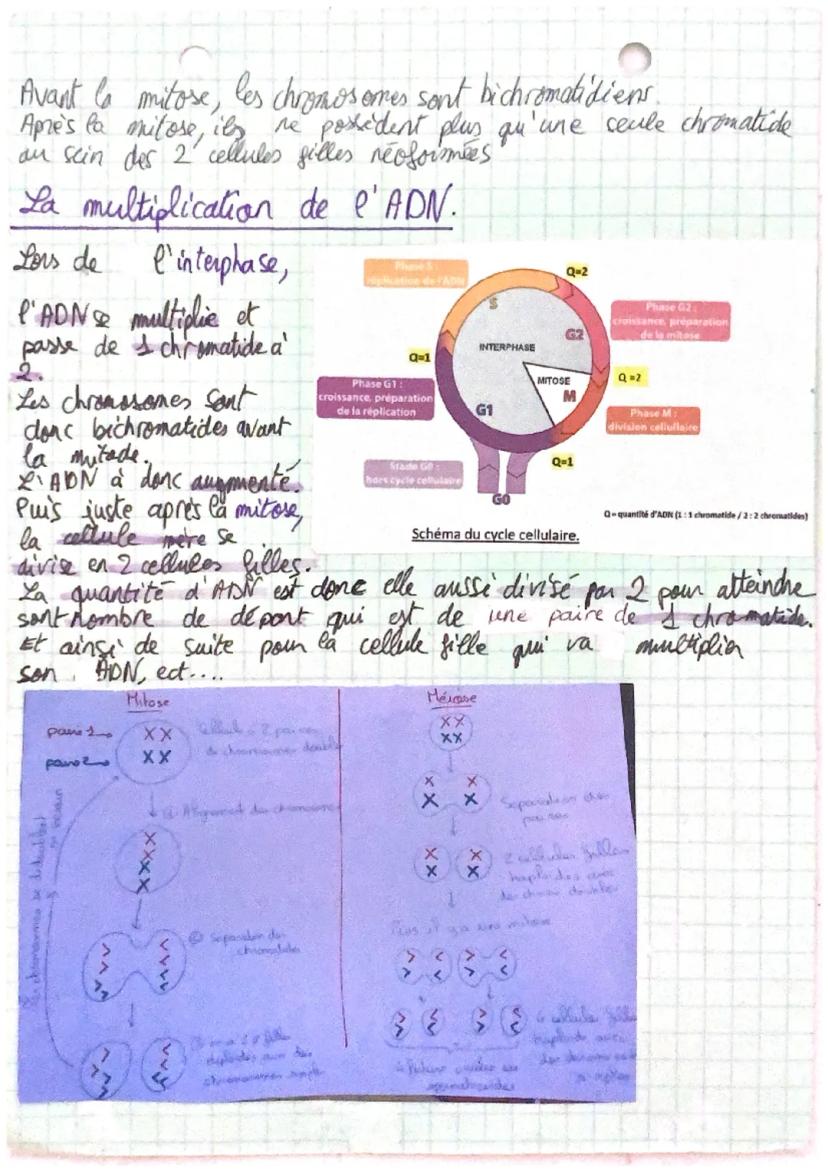 Avant la mitose, les chromosomes sont bichromatidiens.
Après la mitose, ils ne possèdent plus qu'une seule chromatide
au sein des 2 cellules filles néoformées
La multiplication de l'ADN.
Lors de l'interphase,
l'ADN se multiplie et
passe de 1 chromatide à
2.
Les chromosomes sont
donc bichromatides avant
la mytode.
L'ADN à donc augmenté.
Puis juste après la mitose,
la cellule mère se
divise en 2 cellules filles.
La quantité d'ADN est donc elle aussi divisé par 2 pour atteindre
sont nombre de départ qui est de une paire de 1 chromatide.
Et ainsi de suite pour la cellule fille qui va multiplier
son ADN, ect....
Phase S :
réplication de l'ADN
Q=2
S
Phase G2 :
croissance, préparation
de la mitose
G2
INTERPHASE
Q=1
Q =2
MITOSE
M
Phase G1 :
croissance, préparation
de la réplication
G1
Phase M :
division cellullaire
Q=1
Stade G0 :
hors cycle cellulaire
G0
Q = quantité d'ADN (1 : 1 chromatide / 2 : 2 chromatides)
Schéma du cycle cellulaire.
Mitose
paire 1
paire 2
Cellule à 2 paires
de chromosomes doubles
① Alignement des chromosomes
② Séparation des
chromatides
filles
diploïdes avec des
chromosomes simples
Méiose
Séparation des
paires
2 cellules filles
haploïdes avec
des chromo doubles
Puis il y a une mitose
4 cellules filles
haploïdes avec
des chromosomes
simples